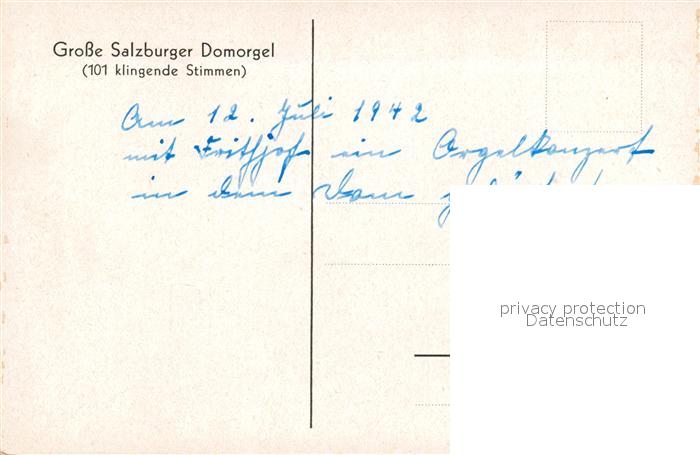 Große Salzburger Domorgel
(101 klingende Stimmen)
Am 12. Juli 1942
mit Frithjof ein Orgelkonzert
in dem Dom
privacy protection
Datenschutz